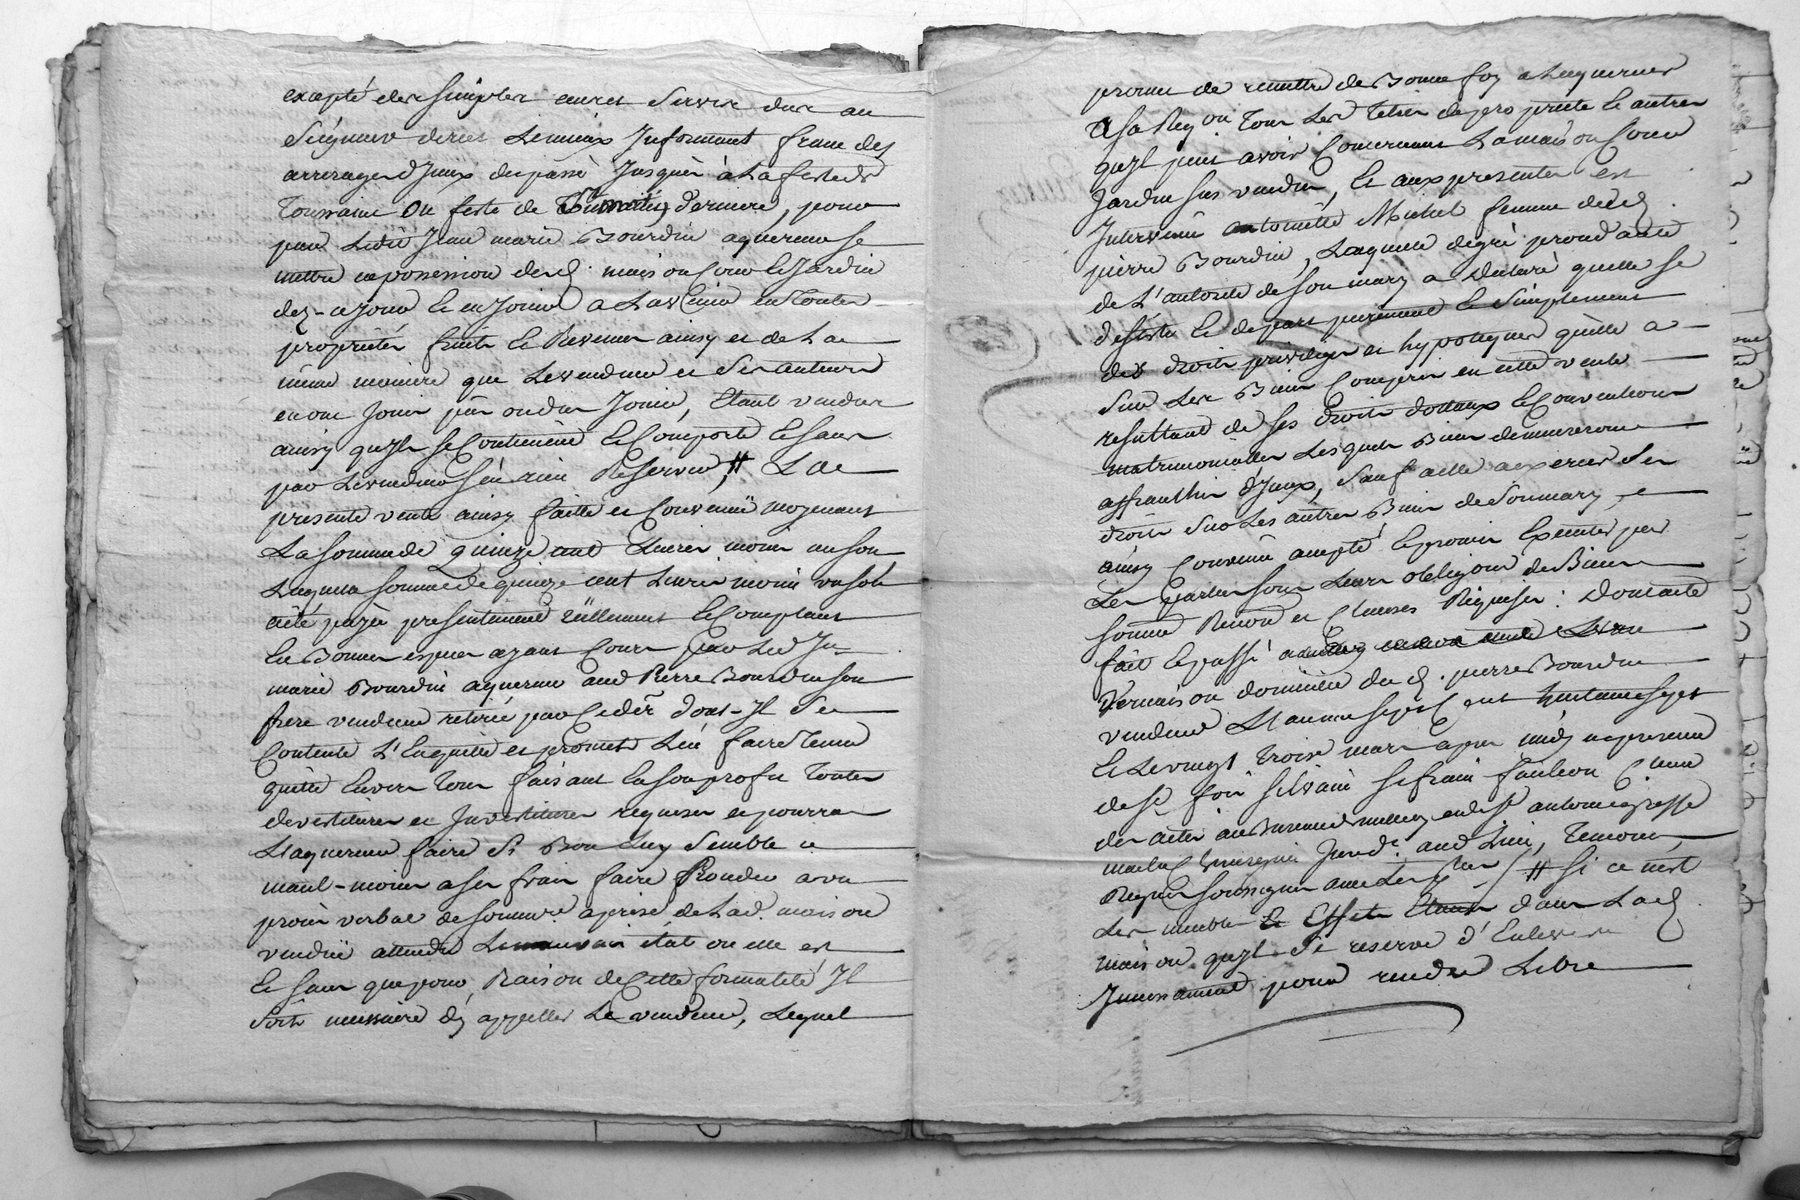 excepté des simples cens et servis dus au
Seigneur directe Lemieux Informant franc des
arrerages d'Iceux du passé Jusques à la feste de
Toussaint ou feste de St martin derniere, pour
par Ledit Jean marie Bourdin aquereur se
mettre en possession desd. maison Cour et Jardin
dez-ce jour et en Jouir a L'avenir en toutes
proprietés fruits et Revenus ainsy et de La
même maniere que Le vendeur et Ses auteurs
en ont Joui pû ou dus Jouir, Etant vendus
ainsy quyls se Contiennent Et Comporte Et sans
par Le vendeur s'en rien Reserver, # La
presente vente ainsy faitte et Convenüe moyenant
La somme de quinze cent Livres moins un sou
Laquelle somme de quinze cent Livres moins un sol
a été payée presentement réellement Et Comptant
En Bonnes especes ayant Cours par Led Jn
marie Bourdin aquereur aud Pierre Bourdin son
frere vendeur retirée par Cedèr dont-Il Se
Contente L'En quitte et promet L'en faire Tenir
quitte Envers Tous faisant En son profit Toutes
devestitures et Investitures requises et pourra
L'aquereur faire Si Bon Luy Semble ce
neant-moins a ses frais faire proceder a un
procès verbal de sommre aprise de Lad. maison
vendüe attendu Le mauvais état ou elle est
Et sans que pour Raison de Cette formalité Il
Soit necessaire d'y appeller Le vendeur, Lequel
promet de remettre de Bonne foy a Laquereur
a sa Reqon. Tous Les Titres de propriete Et autres
quyl peut avoir Concernant La maison Cour
Jardin sus vendus, Et aux presentes est
Intervenüe antoinette Michel femme dud.
pierre Bourdin, Laquelle degré proud'auté
de L'autorité de son mary a declaré quelle se
desiste Et depart purement Et Simplement
des droits privileges et hypoteques quelle a
Sur Les Biens Compris en cette vente
resultant de ses droits dottaux Et Conventions
matrimonialles Lesquels Biens demeureront
affranchis d'Iceux, Sauf a elle a exercer Ses
droits Sur Les autres Biens de Son mary, ce
ainsy Convenû accepté Et promis Executer par
Les parties sous Leurs obligons de Biens
somme Renon et Clauses Requises: Dont acte
fait Et passé
En maison domicille dud. pierre Bourdin
vendeur L'an mil sept cent huitante sept
Et Le vingt Trois mars apres midy en presence
de Sr. fois Silvain Sefrain fauleau Come
des actes au Bureau de mellery, et de Sr antoine grosse
maitre Chirurgien Jurde. aud Lieu, Temoins
Requis soussignés avec Les parties / # Si ce n'est
Les meubles Et Effets Etants dans Lad.
maison quyl Se reserve d'Enlever
Incessament pour rendre Libre